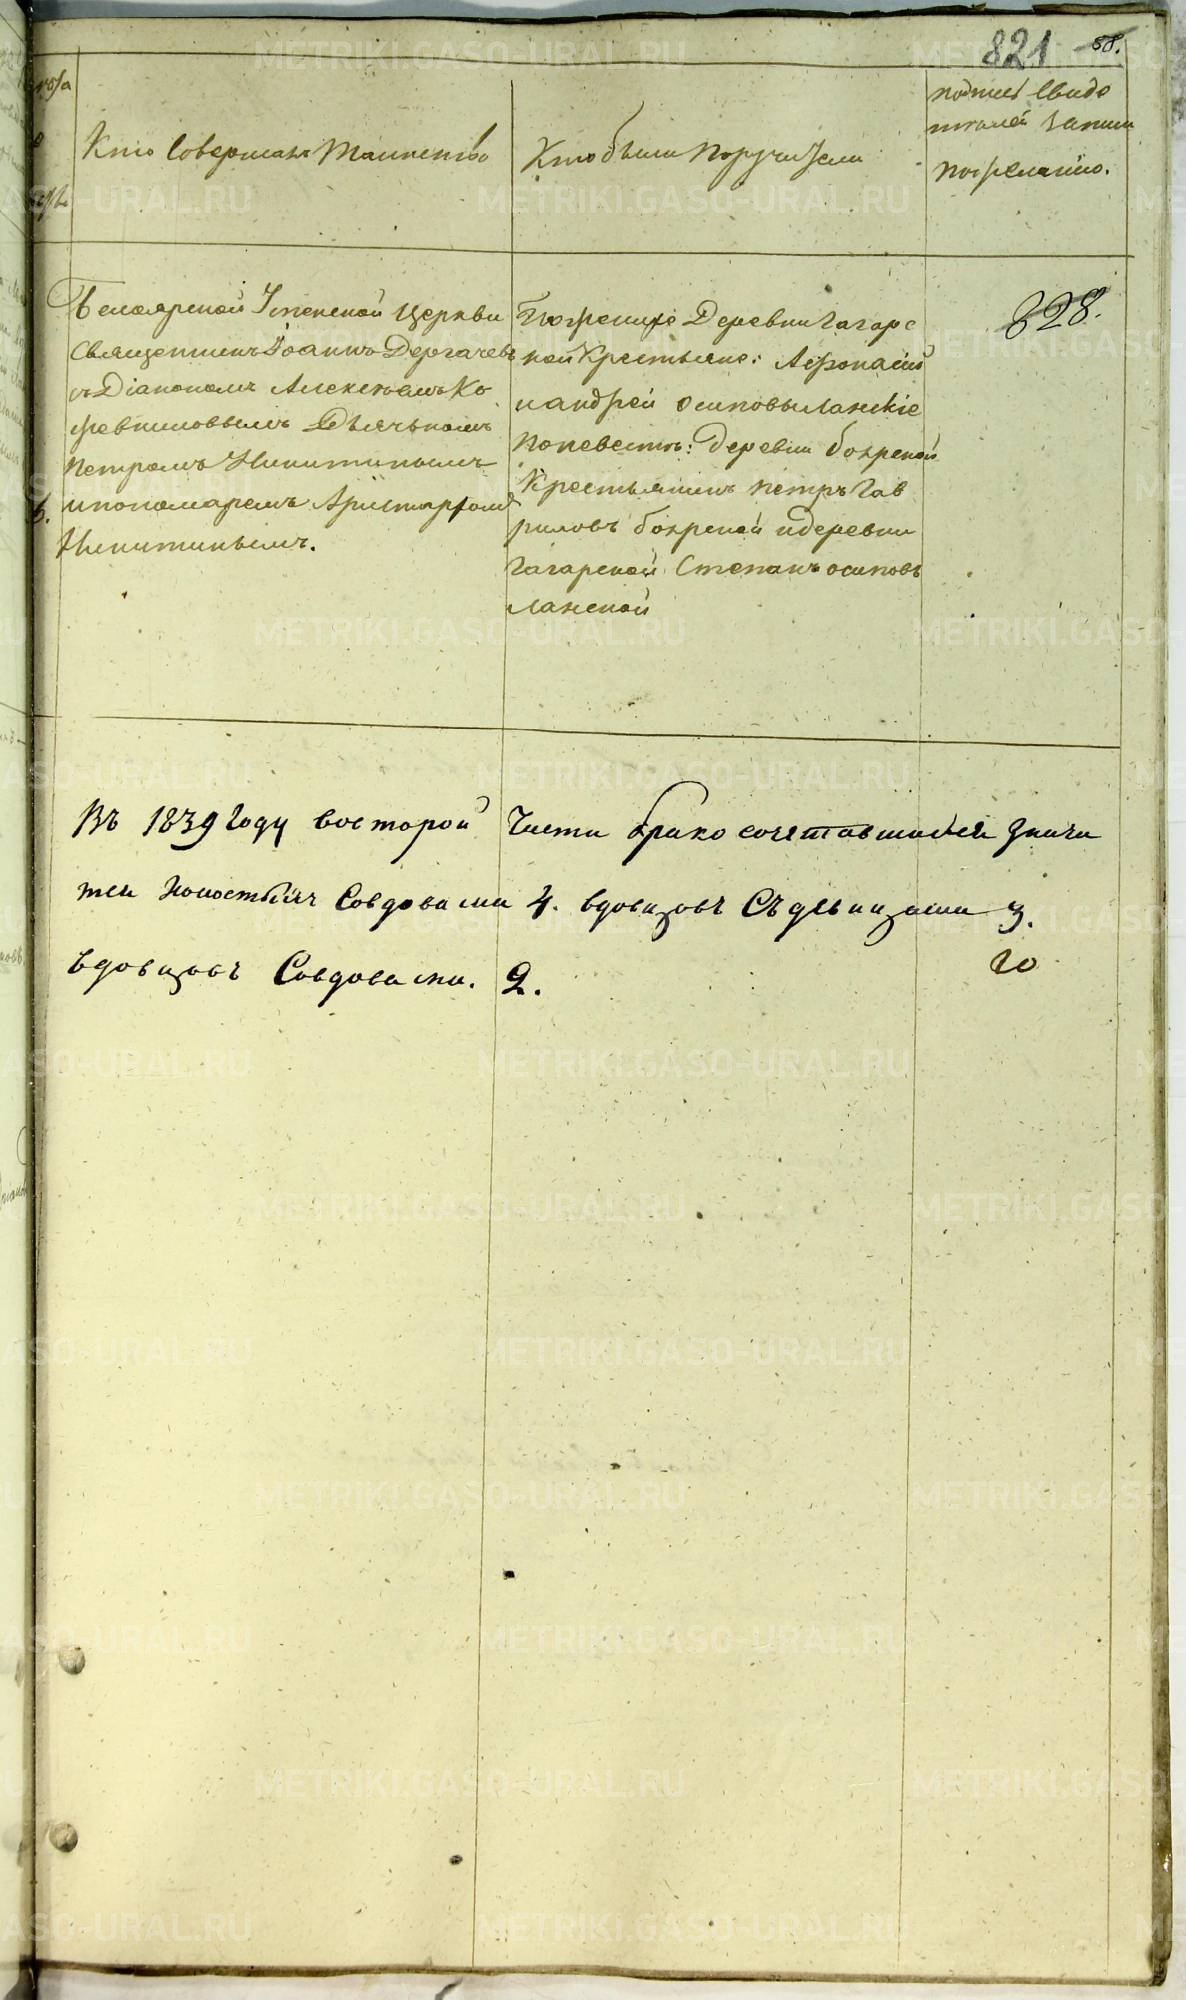 821 58.
Кто Совершалъ Таинство
Кто были Поручители
подпись Свиде
телей записи
по желанію.
Белоярской Успенской Церкви
Священникъ Іоаннъ Дергачевъ
съ Діакономъ Алексѣемъ Ко
жевниковымъ Дьячькомъ
Петромъ Никитинымъ
и пономаремъ Аристархомъ
Никитинымъ.
По женихѣ Деревни Гагарс
кой Крестьяне: Афонасій
и андрей осиповы Ланскіе
По невестѣ: деревни боярской
Крестьянинъ петръ Гав
риловъ боярской и деревни
Гагарской Степанъ осиповъ
Ланской
828.
Въ 1839 Году во второй Части брако сочетавшихся значи
тся Холостыхъ Совдовами 4. вдовцовъ Съ девицами 3.
вдовцовъ Совдовами. 2.
METRIKI.GASO-URAL.RU